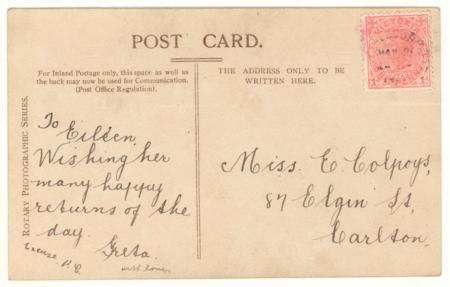 POST CARD.
For Inland Postage only, this space as well as
the back may now be used for Communication.
(Post Office Regulation).
THE ADDRESS ONLY TO BE
WRITTEN HERE.
ROTARY PHOTOGRAPHIC SERIES.
To
Eileen,
Wishing her
many happy
returns of the
day.
Greta.
with love,
Excuse P.C.
VICTORIA
Miss. E. Colpoys,
87 Elgin St,
Carlton.